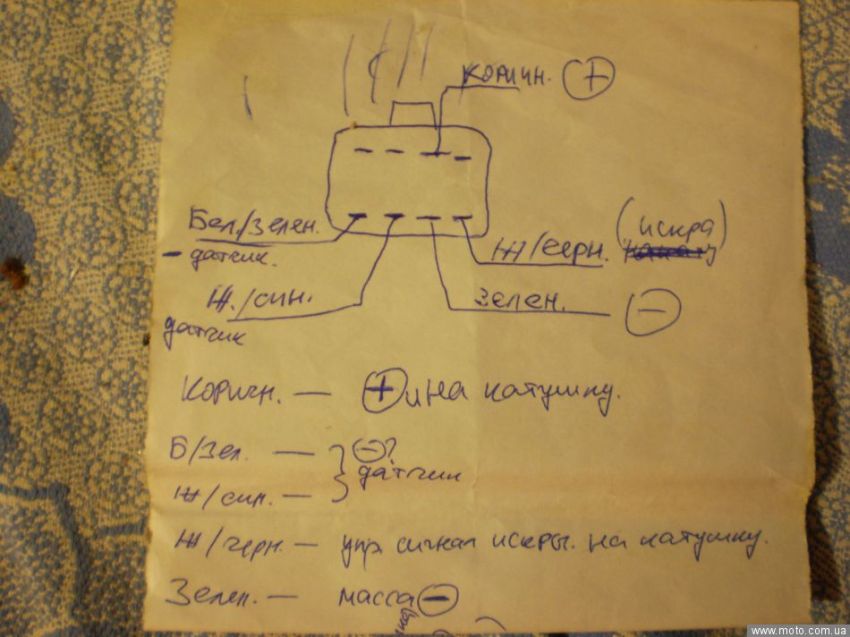 Коричн. (+)
Бел./Зелен.
- датчик.
Ж/черн. (искра)
Ж./син.
датчик
Зелен. (-)
Коричн. — (+) и на катушку.
Б/Зел. — (-)?
датчик
Ж/син. —
Ж/черн. — упр сигнал искры. на катушку.
Зелен. — масса (-)
www.moto.com.ua